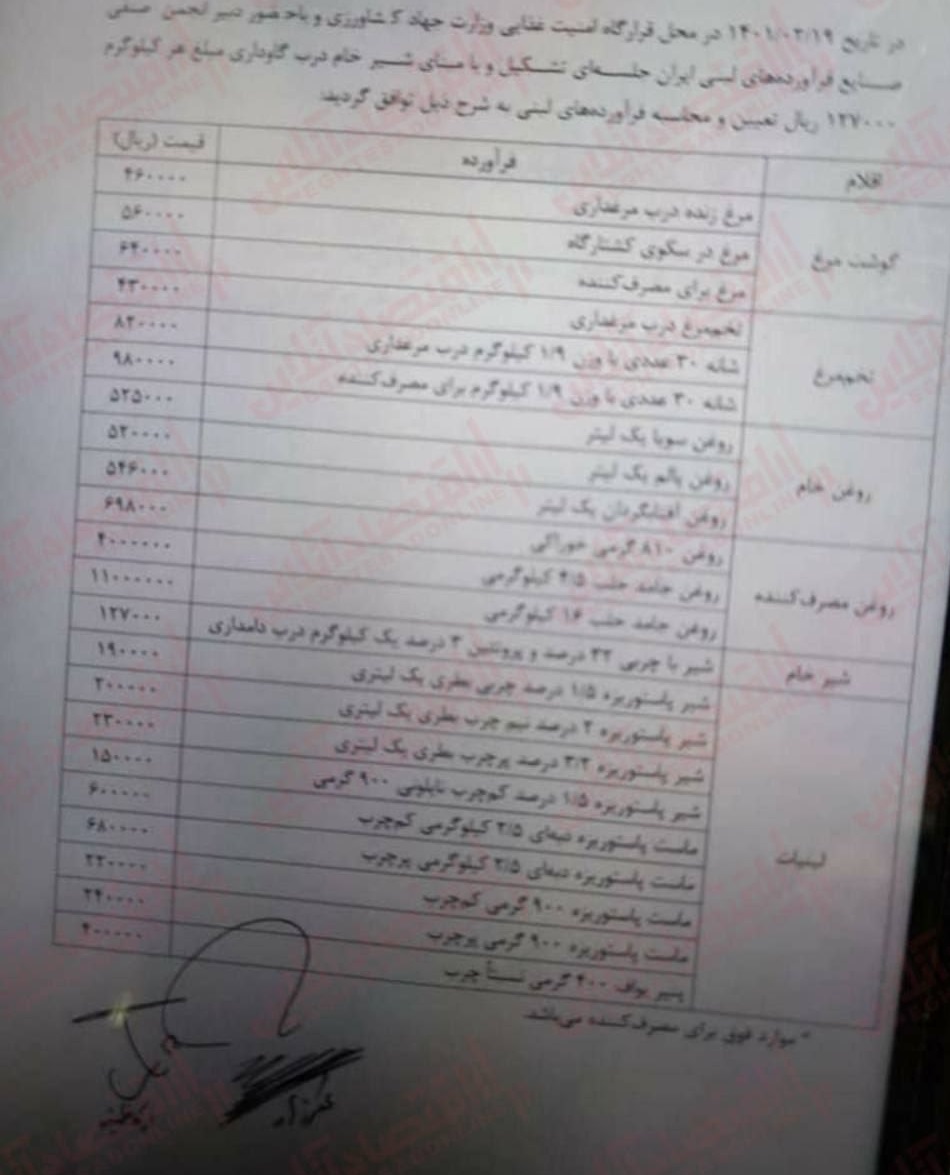 در تاریخ ۱۴۰۱/۰۲/۱۹ در محل قرارگاه امنیت غذایی وزارت جهاد کشاورزی و باحضور دبیر انجمن صنفی
صنایع فرآورده‌های لبنی ایران جلسه‌ای تشکیل و با مبنای شیر خام درب گاوداری مبلغ هر کیلوگرم
۱۲۷۰۰۰ ریال تعیین و محاسبه فرآورده‌های لبنی به شرح ذیل توافق گردید:
اقلام فرآورده قیمت (ریال)
گوشت مرغ
مرغ زنده درب مرغداری ۴۶۰۰۰۰
مرغ در سکوی کشتارگاه ۵۶۰۰۰۰
مرغ برای مصرف‌کننده ۶۴۰۰۰۰
تخم‌مرغ
تخم‌مرغ درب مرغداری ۴۳۰۰۰۰
شانه ۳۰ عددی با وزن ۱/۹ کیلوگرم درب مرغداری ۸۲۰۰۰۰
شانه ۳۰ عددی با وزن ۱/۹ کیلوگرم برای مصرف‌کننده ۹۸۰۰۰۰
روغن خام
روغن سویا یک لیتر ۵۲۵۰۰۰
روغن پالم یک لیتر ۵۲۰۰۰۰
روغن آفتابگردان یک لیتر ۵۴۶۰۰۰
روغن مصرف‌کننده
روغن ۸۱۰ گرمی خوراکی ۶۹۸۰۰۰
روغن جامد حلب ۴/۵ کیلوگرمی
روغن جامد حلب ۱۶ کیلوگرمی ۱۱۰۰۰۰۰۰
شیر خام
شیر با چربی ۳۲ درصد و پروتئین ۳ درصد یک کیلوگرم درب دامداری ۱۲۷۰۰۰
لبنیات
شیر پاستوریزه ۱/۵ درصد چربی بطری یک لیتری ۱۹۰۰۰۰
شیر پاستوریزه ۲ درصد نیم چرب بطری یک لیتری ۲۰۰۰۰۰
شیر پاستوریزه ۳/۲ درصد پرچرب بطری یک لیتری ۲۳۰۰۰۰
شیر پاستوریزه ۱/۵ درصد کم‌چرب نایلونی ۹۰۰ گرمی ۱۵۰۰۰۰
ماست پاستوریزه دبه‌ای ۲/۵ کیلوگرمی کم‌چرب ۶۰۰۰۰۰
ماست پاستوریزه دبه‌ای ۲/۵ کیلوگرمی پرچرب ۶۸۰۰۰۰
ماست پاستوریزه ۹۰۰ گرمی کم‌چرب ۲۲۰۰۰۰
ماست پاستوریزه ۹۰۰ گرمی پرچرب ۲۴۰۰۰۰
پنیر یواف ۴۰۰ گرمی نسبتاً چرب ۴۰۰۰۰۰
* موارد فوق برای مصرف‌کننده می‌باشد.